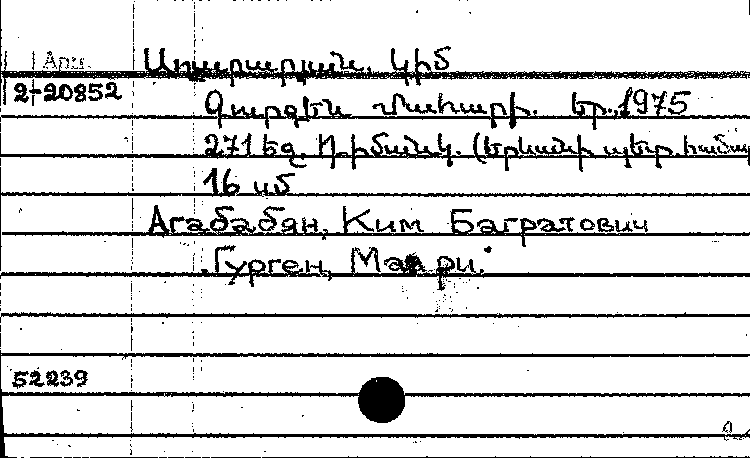 Арм.
Աղաբաբյան, Կիմ
2-20852
Գուրգեն Մահարի. Եր., 1975
271 եջ. Դիմանկ. (Երևանի պետ. համալ
16 սմ
Агабабян, Ким Багратович
Гурген, Маари.
52239